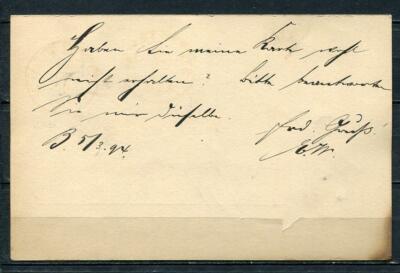 Haben Sie meine Karte wohl
nicht erhalten? Bitte beantworten
Sie mir dieselbe.
frd. Gruß
B 5/3.94.
E.W.